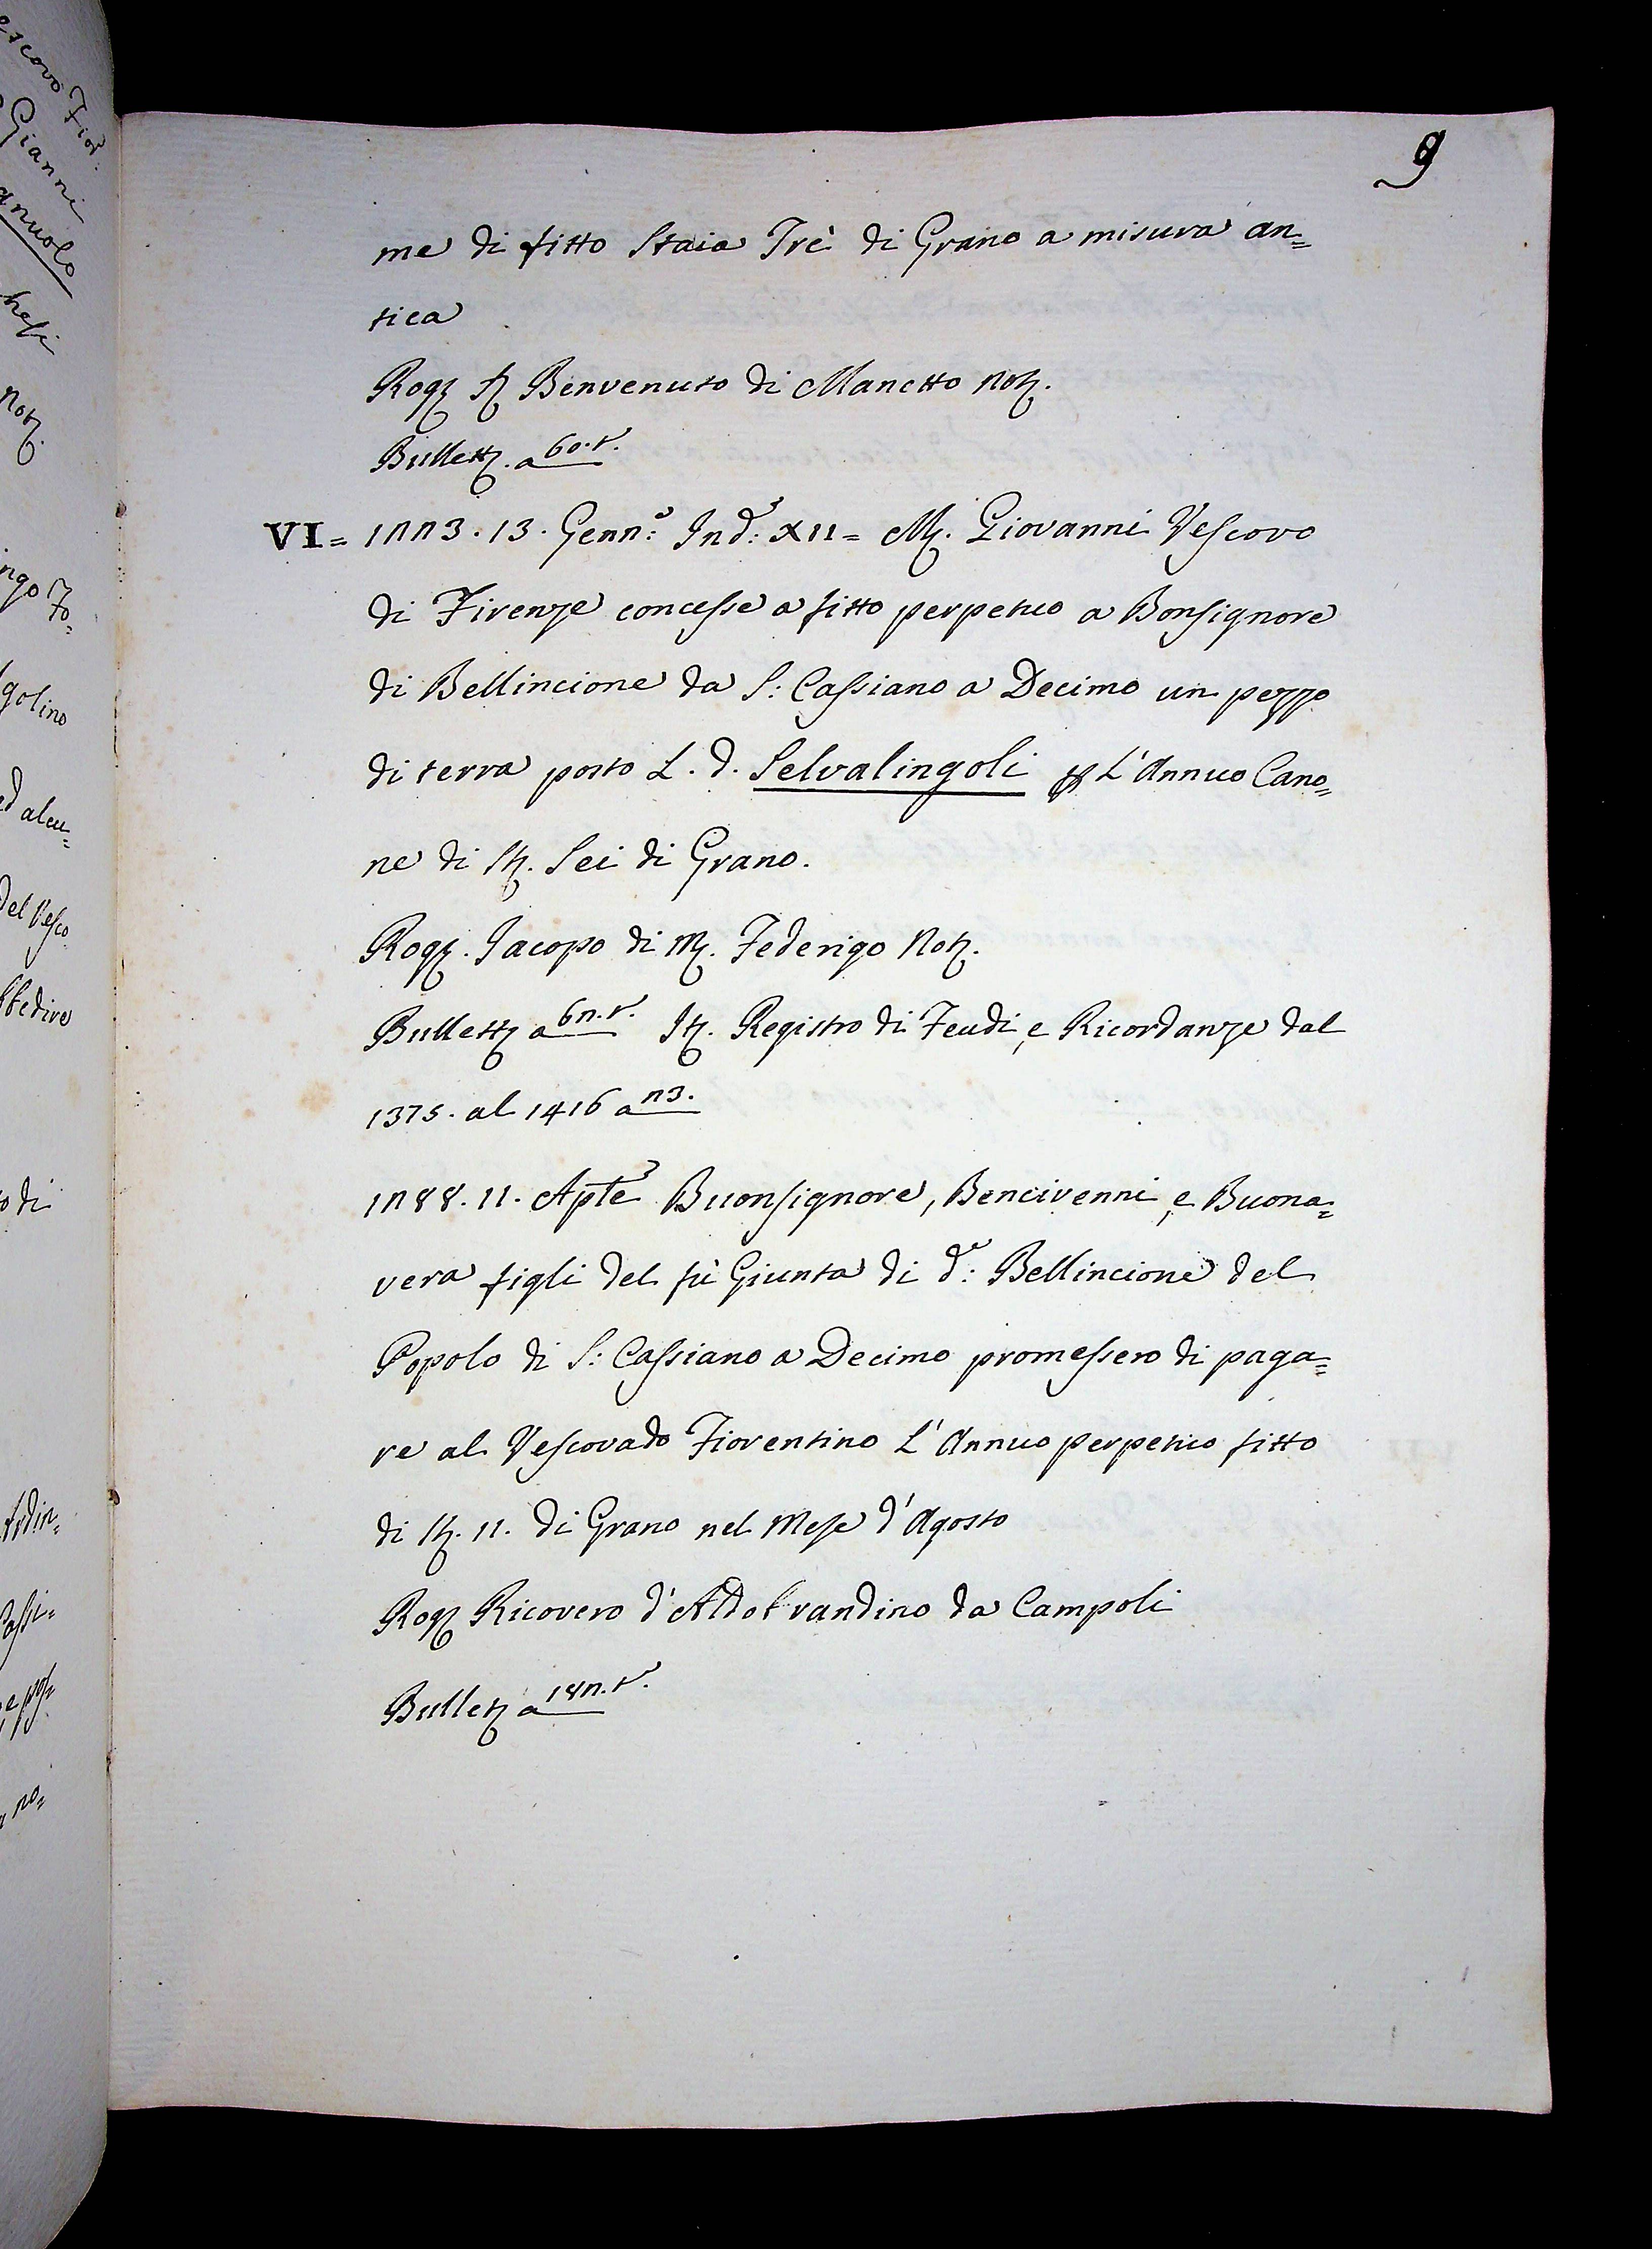 escovo Fior:
Gianni
anuolo
hesi
Not.
ngo Fo=
golino
ed alcu=
del Vesco
bbedire
o di
Ardin=
Cassi=
no=
9
me di fitto Staia Trè di Grano a misura an=
tica
Rog. S. Benvenuto di Manetto Not.
Bullett. a 60.t.
VI= 1223. 13. Genn:o Ind: XII= M. Giovanni Vescovo
di Firenze concesse a fitto perpetuo a Bonsignore
di Bellincione da S: Cassiano a Decimo un pezzo
di terra posto L. d. Selvalingoli p L'Annuo Cano=
ne di St. Sei di Grano.
Rog. Jacopo di M. Federigo Not.
Bullett a 62.t. It. Registro di Feudi, e Ricordanze dal
1375. al 1416 a 23.
1288. 11. Aple Buonsignore, Bencivenni, e Buona=
vera figli del fù Giunta di d:o Bellincione del
Popolo di S: Cassiano a Decimo promessero di paga=
re al Vescovado Fiorentino L'Annuo perpetuo fitto
di St. 11. di Grano nel Mese d'Agosto
Rog Ricovero d'Aldobrandino da Campoli
Bullet a 182.t.